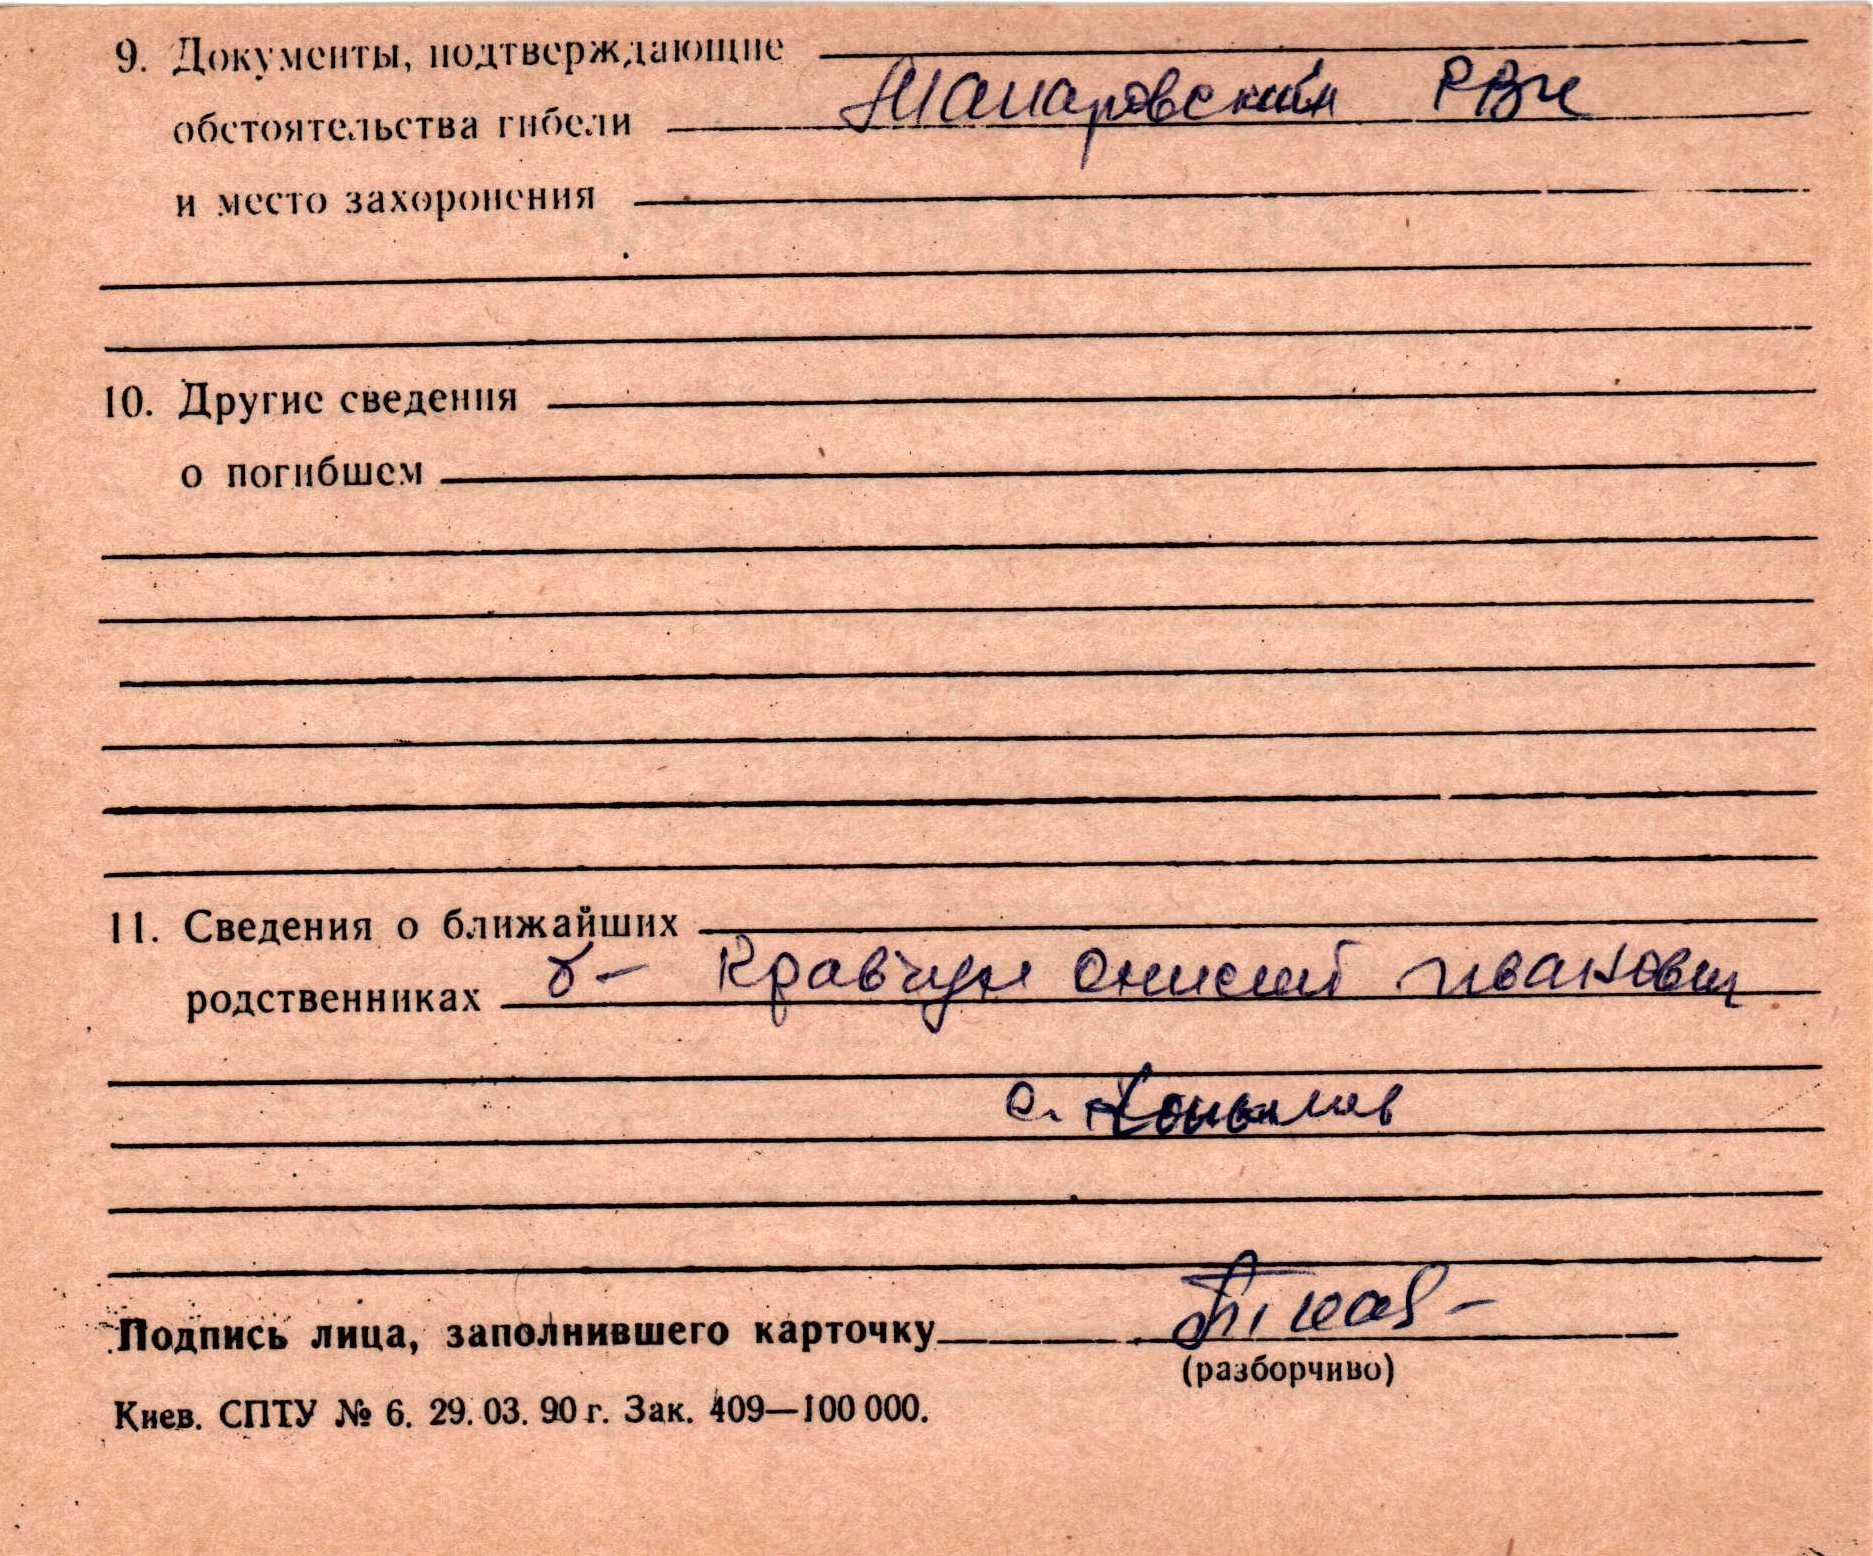 9. Документы, подтверждающие
обстоятельства гибели Макаровский РВК
и место захоронения
10. Другие сведения
о погибшем
11. Сведения о ближайших
родственниках б- Кравчун Онисий Иванович
с.
Подпись лица, заполнившего карточку
(разборчиво)
Киев. СПТУ № 6. 29. 03. 90 г. Зак. 409—100 000.